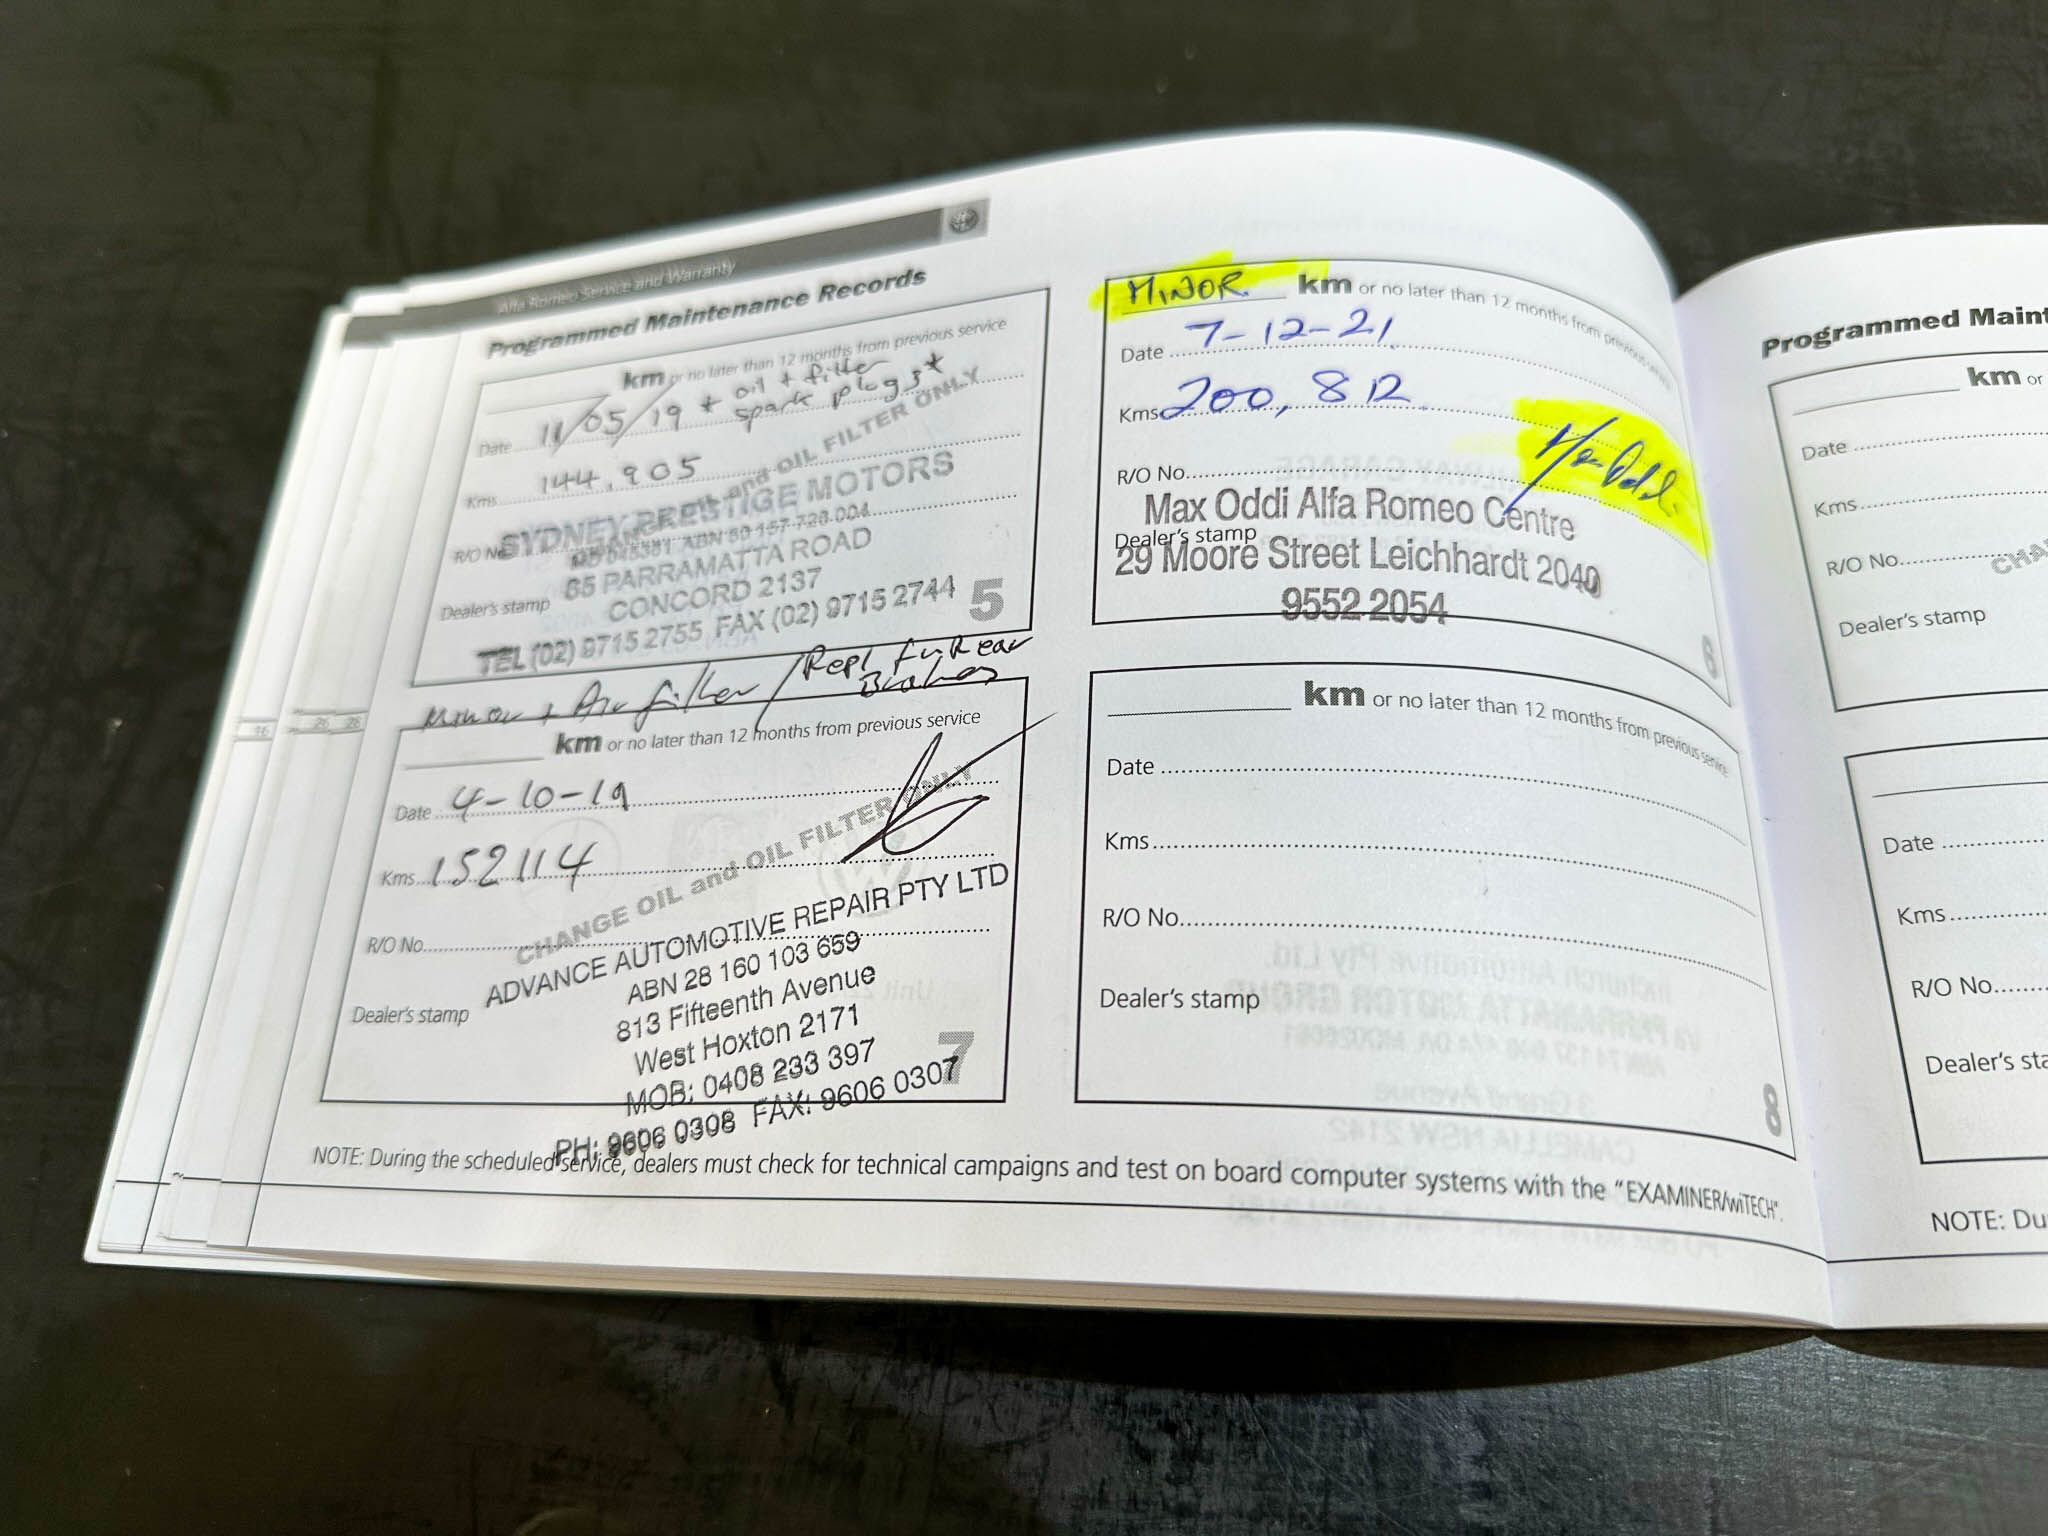 Alfa Romeo Service and Warranty
Programmed Maintenance Records
km or no later than 12 months from previous service
Date 11/05/19 * oil + filter
spark plugs *
Kms 144,905
CHANGE OIL and OIL FILTER ONLY
R/O No
SYDNEY PRESTIGE MOTORS
ABN 50 157 728 004
85 PARRAMATTA ROAD
CONCORD 2137
Dealer's stamp
TEL (02) 9715 2755 FAX (02) 9715 2744
5
Minor + Air filter / Repl Fr Rear
Brakes
km or no later than 12 months from previous service
Date 4-10-19
Kms 152114
CHANGE OIL and OIL FILTER ONLY
R/O No
ADVANCE AUTOMOTIVE REPAIR PTY LTD
ABN 28 160 103 659
Dealer's stamp
813 Fifteenth Avenue
West Hoxton 2171
MOB: 0408 233 397
PH: 9606 0308 FAX: 9606 0307
7
MINOR km or no later than 12 months from previous service
Date 7-12-21
Kms 200,812
R/O No
Max Oddi
Max Oddi Alfa Romeo Centre
Dealer's stamp
29 Moore Street Leichhardt 2040
9552 2054
6
km or no later than 12 months from previous service
Date
Kms
R/O No
Dealer's stamp
8
NOTE: During the scheduled service, dealers must check for technical campaigns and test on board computer systems with the "EXAMINER/wiTECH".
Programmed Maint
km or
Date
Kms
R/O No
CHA
Dealer's stamp
Date
Kms
R/O No
Dealer's sta
NOTE: Du